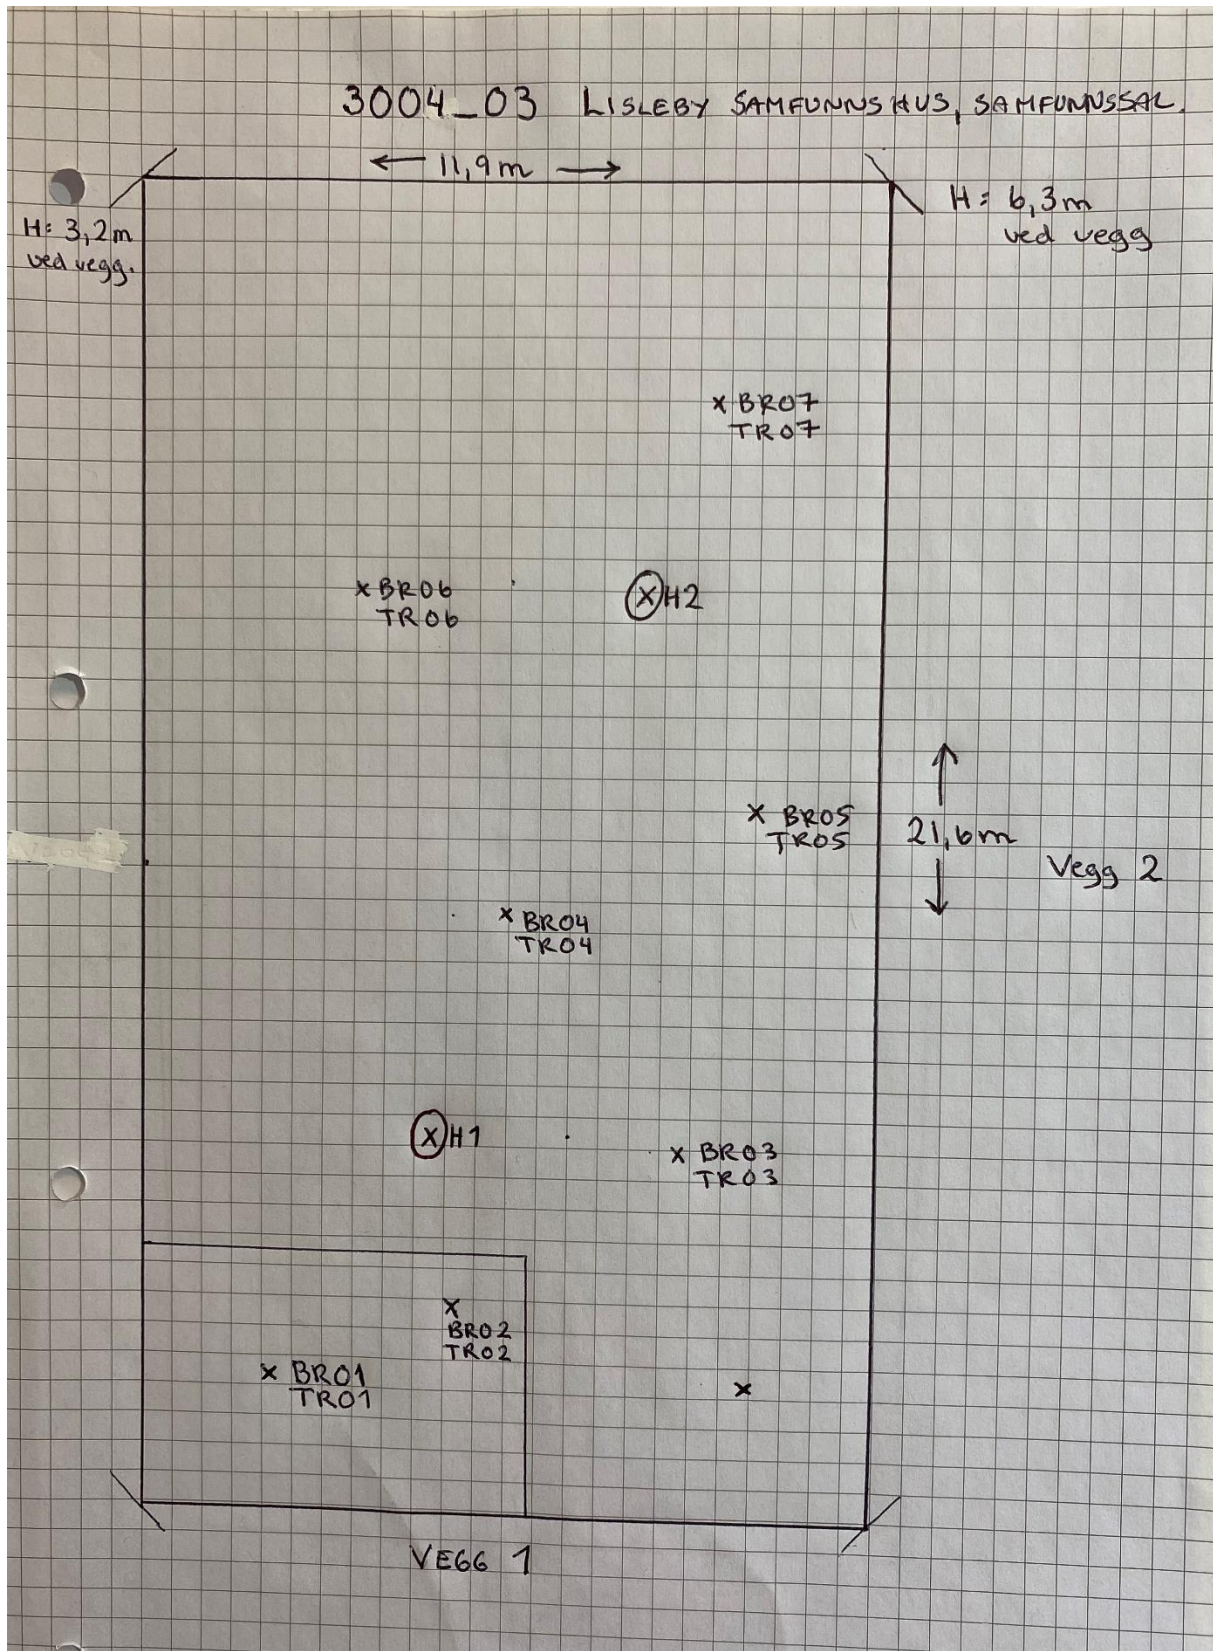 3004_03 LISLEBY SAMFUNNSHUS, SAMFUNNSSAL.
← 11,9m →
H: 3,2m
ved vegg.
H: 6,3m
ved vegg
x BR07
TR07
x BR06
TR06
x H2
x BR05
TR05
21,6m
Vegg 2
x BR04
TR04
x H1
x BR03
TR03
x
BR02
TR02
x BR01
TR01
x
VEGG 1